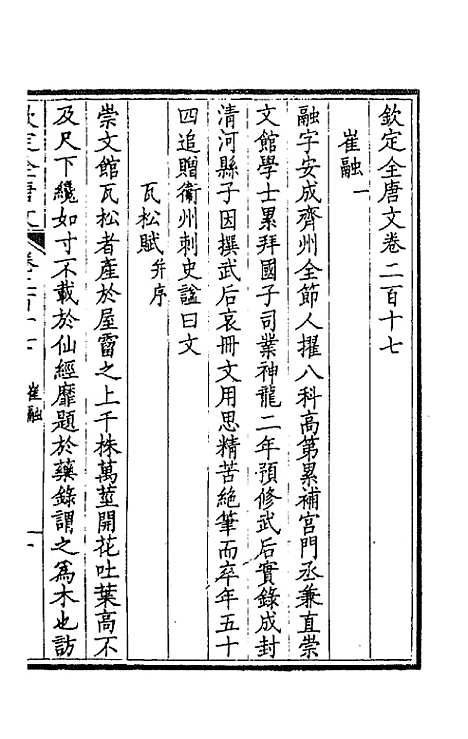 欽定全唐文卷二百十七
崔融一
融字安成齊州全節人擢八科高第累補宮門丞兼直崇
文館學士累拜國子司業神龍二年預修武后實錄成封
清河縣子因撰武后哀冊文用思精苦絕筆而卒年五十
四追贈衞州刺史諡曰文
瓦松賦并序
崇文館瓦松者產於屋霤之上千株萬莖開花吐葉高不
及尺下纔如寸不載於仙經靡題於藥錄謂之爲木也訪
欽定全唐文 卷二百十七 崔融 一